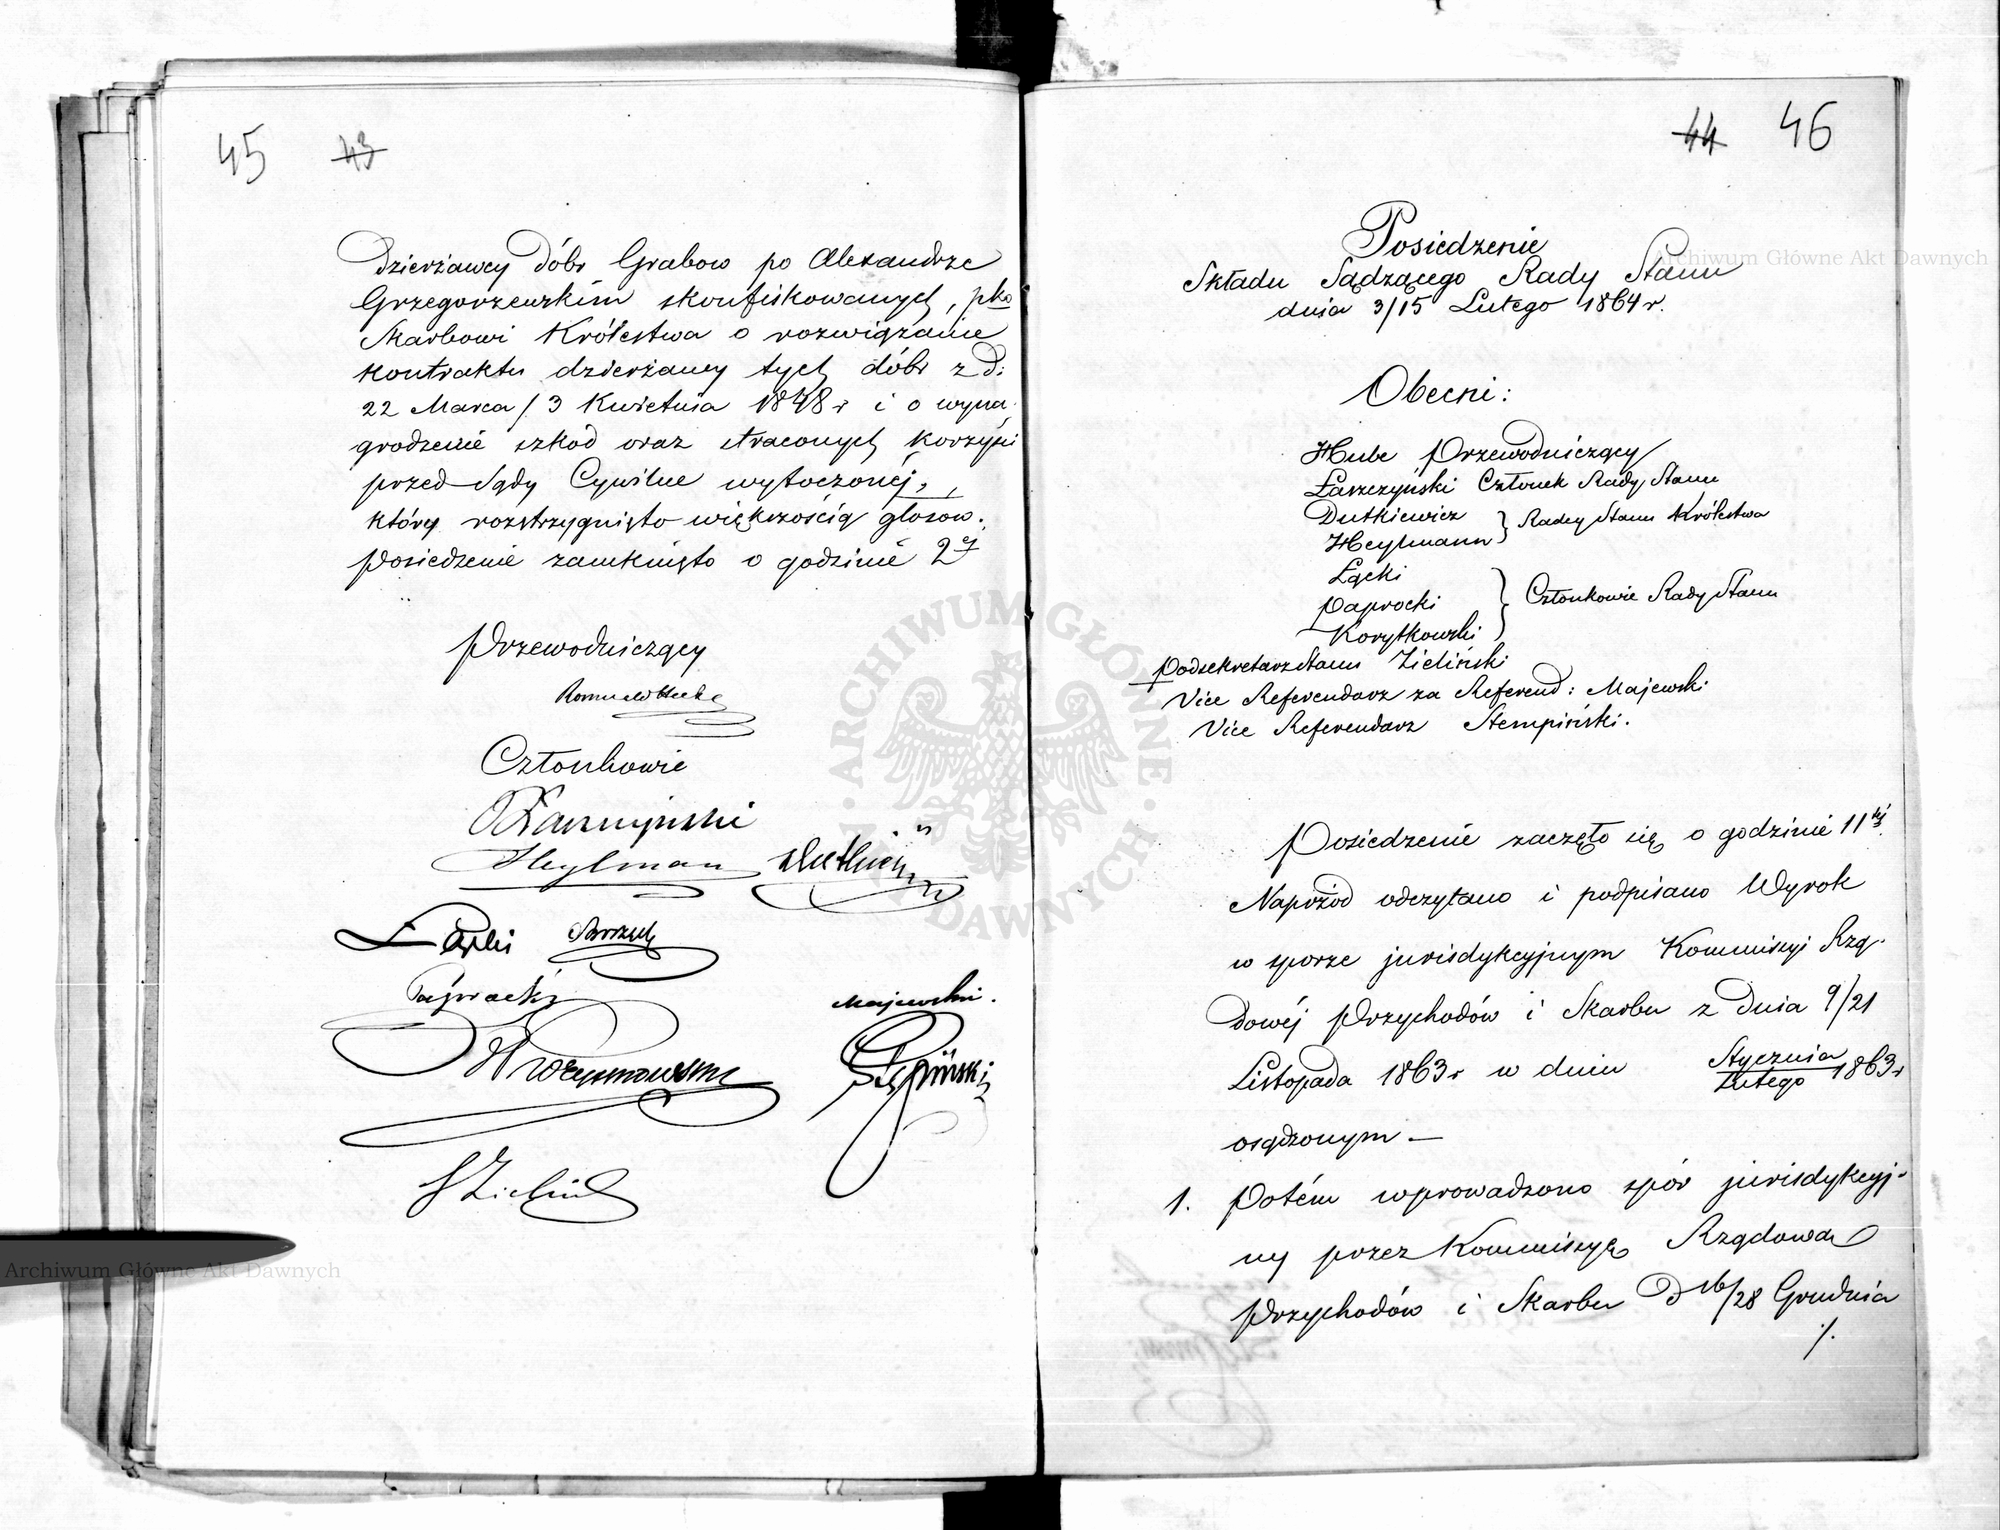 45 43
Dzierżawcy dóbr Grabow po Alexandrze
Grzegorzewskim skonfiskowanych, pko
Skarbowi Królestwa o rozwiązanie
kontraktu dzierżawy tych dóbr z d:
22 Marca/3 Kwietnia 1848 r i o wyna-
grodzenie szkód oraz straconych korzyści
przed Sądy Cywilne wytoczonéj,
który rozstrzygnięto większością głosow.
Posiedzenie zamknięto o godzinie 2éj
Przewodniczący
Romuald Hube
Członkowie
Łaszczyński
Heylman Dutkiewicz
Łącki
Paprocki Majewski.
Stępiński
Zieliński
44 46
Posiedzenie
Składu Sądzącego Rady Stanu
dnia 3/15 Lutego 1864 r.
Obecni:
Hube Przewodniczący
Łaszczyński Członek Rady Stanu
Dutkiewicz } Radcy Stanu Królestwa
Heylmann
Łącki
Paprocki } Członkowie Rady Stanu
Korytkowski
Podsekretarz Stanu Zieliński
Vice Referendarz za Referend: Majewski
Vice Referendarz Stempiński.
Posiedzenie zaczęło się o godzinie 11téj.
Naprzód odczytano i podpisano Wyrok
w sporze jurisdykcyjnym Kommissyi Rzą-
dowéj Przychodów i Skarbu z dnia 9/21
Listopada 1863 r w dniu Stycznia/Lutego 1863 r
osądzonym —
1. Potém wprowadzono spór jurisdykcyj-
ny przez Kommissyę Rządową
Przychodów i Skarbu D 16/28 Grudnia
./.
Archiwum Główne Akt Dawnych
Archiwum Główne Akt Dawnych
ARCHIWUM GŁÓWNE AKT DAWNYCH